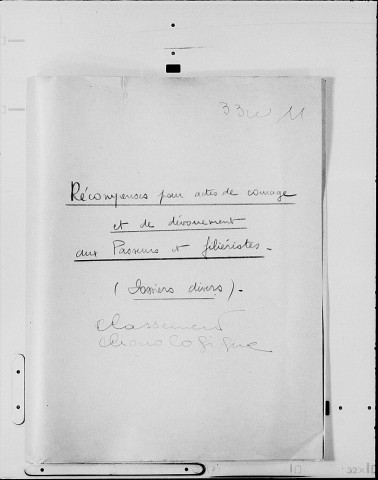 33W 11
Récompenses pour actes de courage
et de dévouement
aux Passeurs et filiéristes.
(Dossiers divers).
classement
chronologique